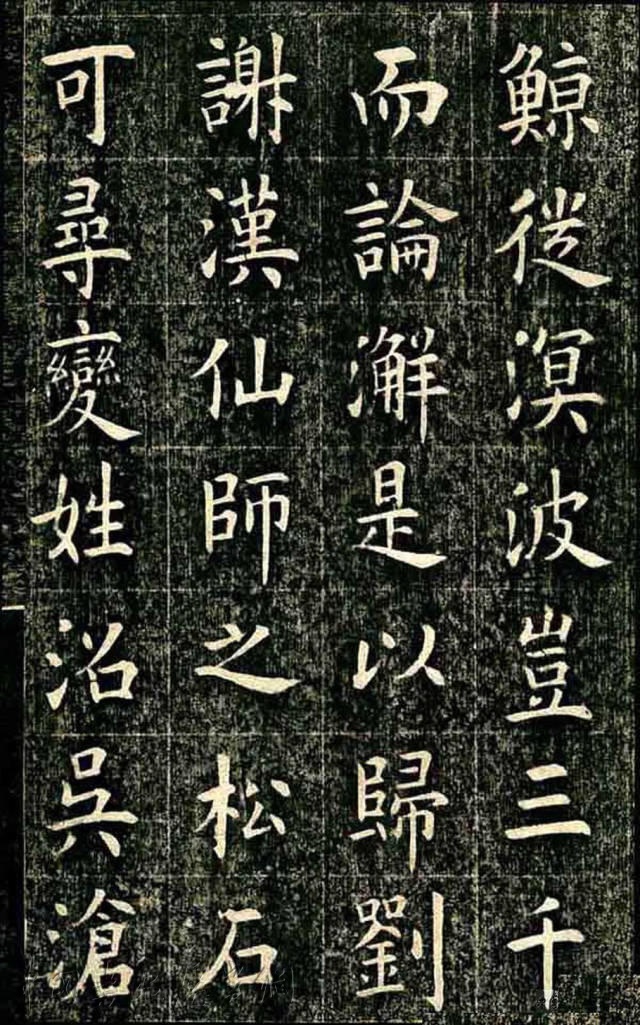 鯨從溟波豈三千
而論澥是以歸劉
謝漢仙師之松石
可尋變姓沿吳滄